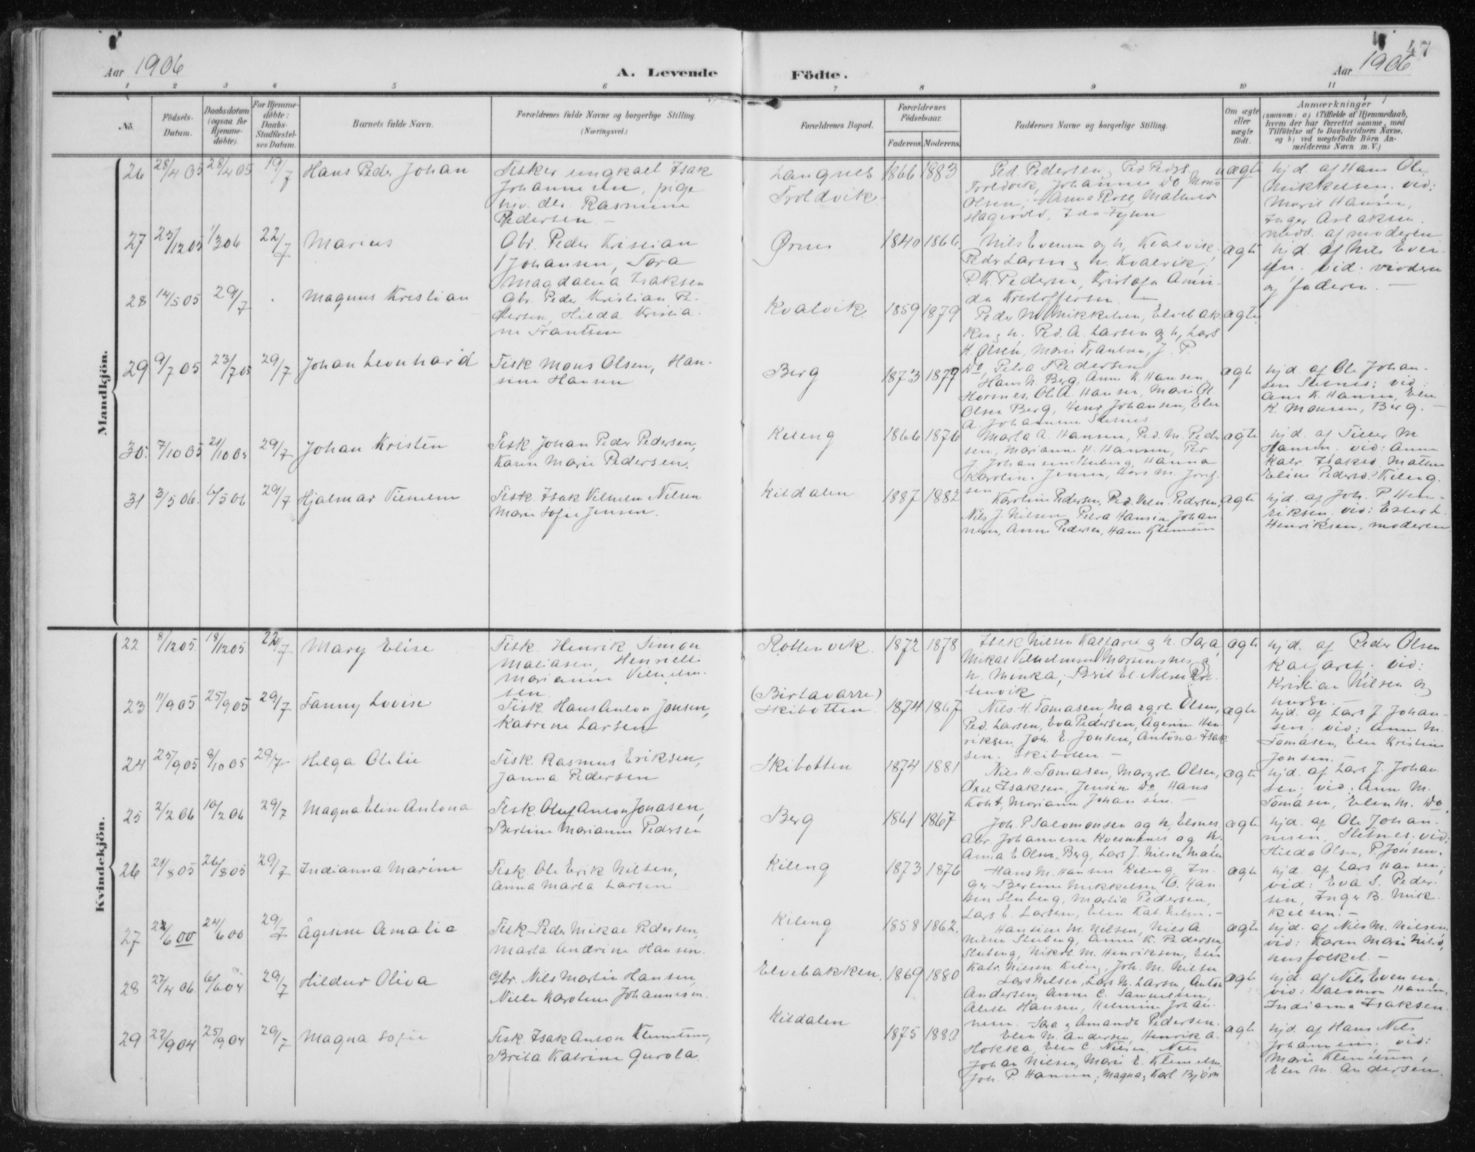 Aar 1906
A. Levende Födte.
Aar 1906
47
1 2 3 4 5 6 7 8 9 10 11
No.
Födsels-Datum.
Daabsdatum (ogsaa for Hjemme-døbte)
For Hjemme-døbte: Daabs-Stadfæstel-ses Datum.
Barnets fulde Navn.
Forældrenes fulde Navne og borgerlige Stilling. (Næringsvei.)
Forældrenes Bopæl.
Forældrenes Födselsaar.
Faderens. Moderens.
Faddernes Navne og borgerlige Stilling.
Om ægte eller uægte født.
Anmærkninger
Mandkjön.
26 28/4 05 28/4 05 19/7 Hans Peder Johan
Fisker ungkarl Isak
Johannesen, pige
Rasmine
Pedersen
Langnes
Troldvik
1866 1883
Ped Pedersen
Troldvik, Johannes Do
Olsen, Hanna Rost
uægte
hjd. af Hans Ol.
Mikkelsen. vid:
Marit Hansen,
Inger Aslaksen.
medd. af moderen
27 23/12 05 1/3 06 22/7 Marius
Gbr. Peder Kristian
Johansen, Sara
Magdalena Isaksen
Ørnes
1840 1866
Nils Evensen og h. Kvalvik
Peder Larsen og h. Kvalvik,
P. K. Pedersen, Kristofa Amin-
da Kristoffersen.
ægte
hjd. af Nils Even-
sen. vid: moderen
og faderen. —
28 14/5 05 29/7 Magnus Kristian
Gbr. Peder Kristian Pe-
dersen, Hilda Kristia-
ne Frantsen
Kvalvik
1859 1879
Peder M. Mikkelsen, Elvebak-
ken og h. Ped. A. Larsen og h, Lars
H. Olsen, Marie Frantsen, J. P.
Petra Pedersen
ægte
29 9/7 05 23/7 05 29/7 Johan Leonhard
Fisk Mons Olsen, Han-
sine Hansen
Berg
1873 1879
Hans N. Berg, Anne K. Hansen,
Horsnes, Ole A. Hansen, Marie Ol.
Olsen Berg, Henr Johansen, Elen
A Johannesen Stesnes
ægte
hjd. af Ole Johan-
sen Stesnes: vid:
Anne K. Hansen, Elen
K. Monsen, Berg. —
30. 7/10 05 21/10 05 29/7 Johan Kristin
Fisk Johan Peder Pedersen,
Karen Marie Pedersen.
Kileng
1866 1876
Marta A. Hansen, Ped. M. Peder
sen, Marianne H. Hansen, Per
J. Johansen Stuberg, Hanna
Karoline Jensen, Lars M. Jørg-
sen
ægte
hjd. af M
Hansen. vid: Anne
Katr. Isaksd. Mattem
Eline Pedersd. Kileng.
31 3/5 06. 6/5 06 29/7 Hjalmar Vilhelm
Fisk Isak Vilhelm Nilsen
Maren Sofie Jensen.
Kildalen
1887 1882
Karoline Pedersen, Ped. Vilh. Pedersen,
Nils J. Nilsen, Petra Hansen, Johan-
nesen, Anne Pedersen, Hans
ægte
hjd. af Joh. P. Hen-
riksen. vid: Ester L.
Henriksen, moderen
Kvindekjön.
22 8/12 05 18/12 05 22/7 Mary Elise
Fisk Henrik Simon
Matiasen, Henriette
Marianne Vilhelm-
sen
Rottenvik.
1872 1878
Isak Nilsen Kalfaret og h. Sara
Mikal Vilhelmsen Mortensnes og
h. Minka, Berit El Nilsen Rot-
tenvik
ægte
hjd. af Peder Olsen
Kalfaret. vid:
Kristian Nilsen og
hustru.
23 11/9 05 25/9 05 29/7 Fanny Lovise
Fisk Hans Anton Jonsen,
Katrine Larsen
(Birtavarre)
Skibotten.
1874 1867
Nils H. Tomasen, Margrete Olsen,
Ped. Larsen, Eva Pedersen, Agerine Hen
riksen, Joh. E. Jonsen, Antona Isak
sen. Skibotten —
ægte
hjd. af Lars J. Johan-
sen. vid: Anne M.
Tomasen, Elen Kristine
Jonsen. —
24 25/9 05 8/10 05 29/7 Helga Otelie
Fisk Rasmus Eriksen,
Janna Pedersen
Skibotten
1874 1881
Nils H Tomasen, Margrete Olsen,
Oxel Isaksen, Jensine Do, Hans
Marianne Johansen. —
ægte
hjd. af Lars J. Johan
sen; vid: Anne M.
Tomasen, Elen M. Do,
25 2/2 06 10/2 06 29/7 Magna Elin Antona
Fisk Oluf Anton Jonasen,
Berline Marianne Pedersen
Berg
1861 1867
Joh. P. Salomonsen og h, Elsnes
Johannesen og h.
Anna E Olsen, Berg, Lars J. Nilsen
ægte
hjd. af Ole Johan-
nesen, Stesnes. vid:
Hilda Olsen, P. Jonsen.
26 21/8 05 26/8 05 29/7 Indianna Marine
Fisk. Ole Erik Nilsen,
Anna Marta Larsen
Kileng
1873 1876
Hans M. Hansen Kileng, In-
ger Bertine Mikkelsen, O. Han
sen Stuberg, Martha Pedersen,
Lars E. Larsen, Elen Kat. Eilen. —
ægte
hjd. af Lars Hansen,
vid: Eva S. Peder-
sen, Inger B. Mik-
kelsen. —
27 22/6 00 24/6 00 29/7 Ågesine Amalia
Fisk Peder Mikal Pedersen,
Marta Andrine Hansen.
Kileng
1858 1862.
Hansine M. Nilsen, Nils A
Nilsen Stuberg, Anne K. Pedersen,
Stuberg, Nikol. M. Henriksen, Elen
Katr. Nilsen Kileng, Joh. M. Nilsen
ægte
hjd. af Nils M. Nilsen,
vid: Karen Marie Nilsd.,
husfolket. —
28 27/4 06 6/6 04 29/7 Hildur Oliva
Gbr. Nils Martin Hansen,
Nille Karoline Johannesen.
Elvebakken.
1869 1880
Lars Nilsen, Lars M. Larsen, Anton
Andersen, Anne C. Samuelsen,
Aleth Hansen, Helmine Johan-
nesen. Sara og Amande Pedersen.
ægte
hjd. af Nils Evensen
vid: Salomon Hansen,
Indianna Isaksen.
29 22/9 04 25/9 04 29/7 Magna Sofie
Fisk. Isak Anton Klemetsen,
Brita Katrine Qurola
Kildalen
1875 1880
Elen M. Andersen, Henrik A.
Hokka, Elen C. Nilsen, Nils
Johan Nilsen, Marie E. Klemetsen,
Joh. P. Hansen, Magna, Karl Bjørn
ægte
hjd. af Hans Nils
Johannesen. vid:
Marie Klemetsen,
Elen M. Andersen.